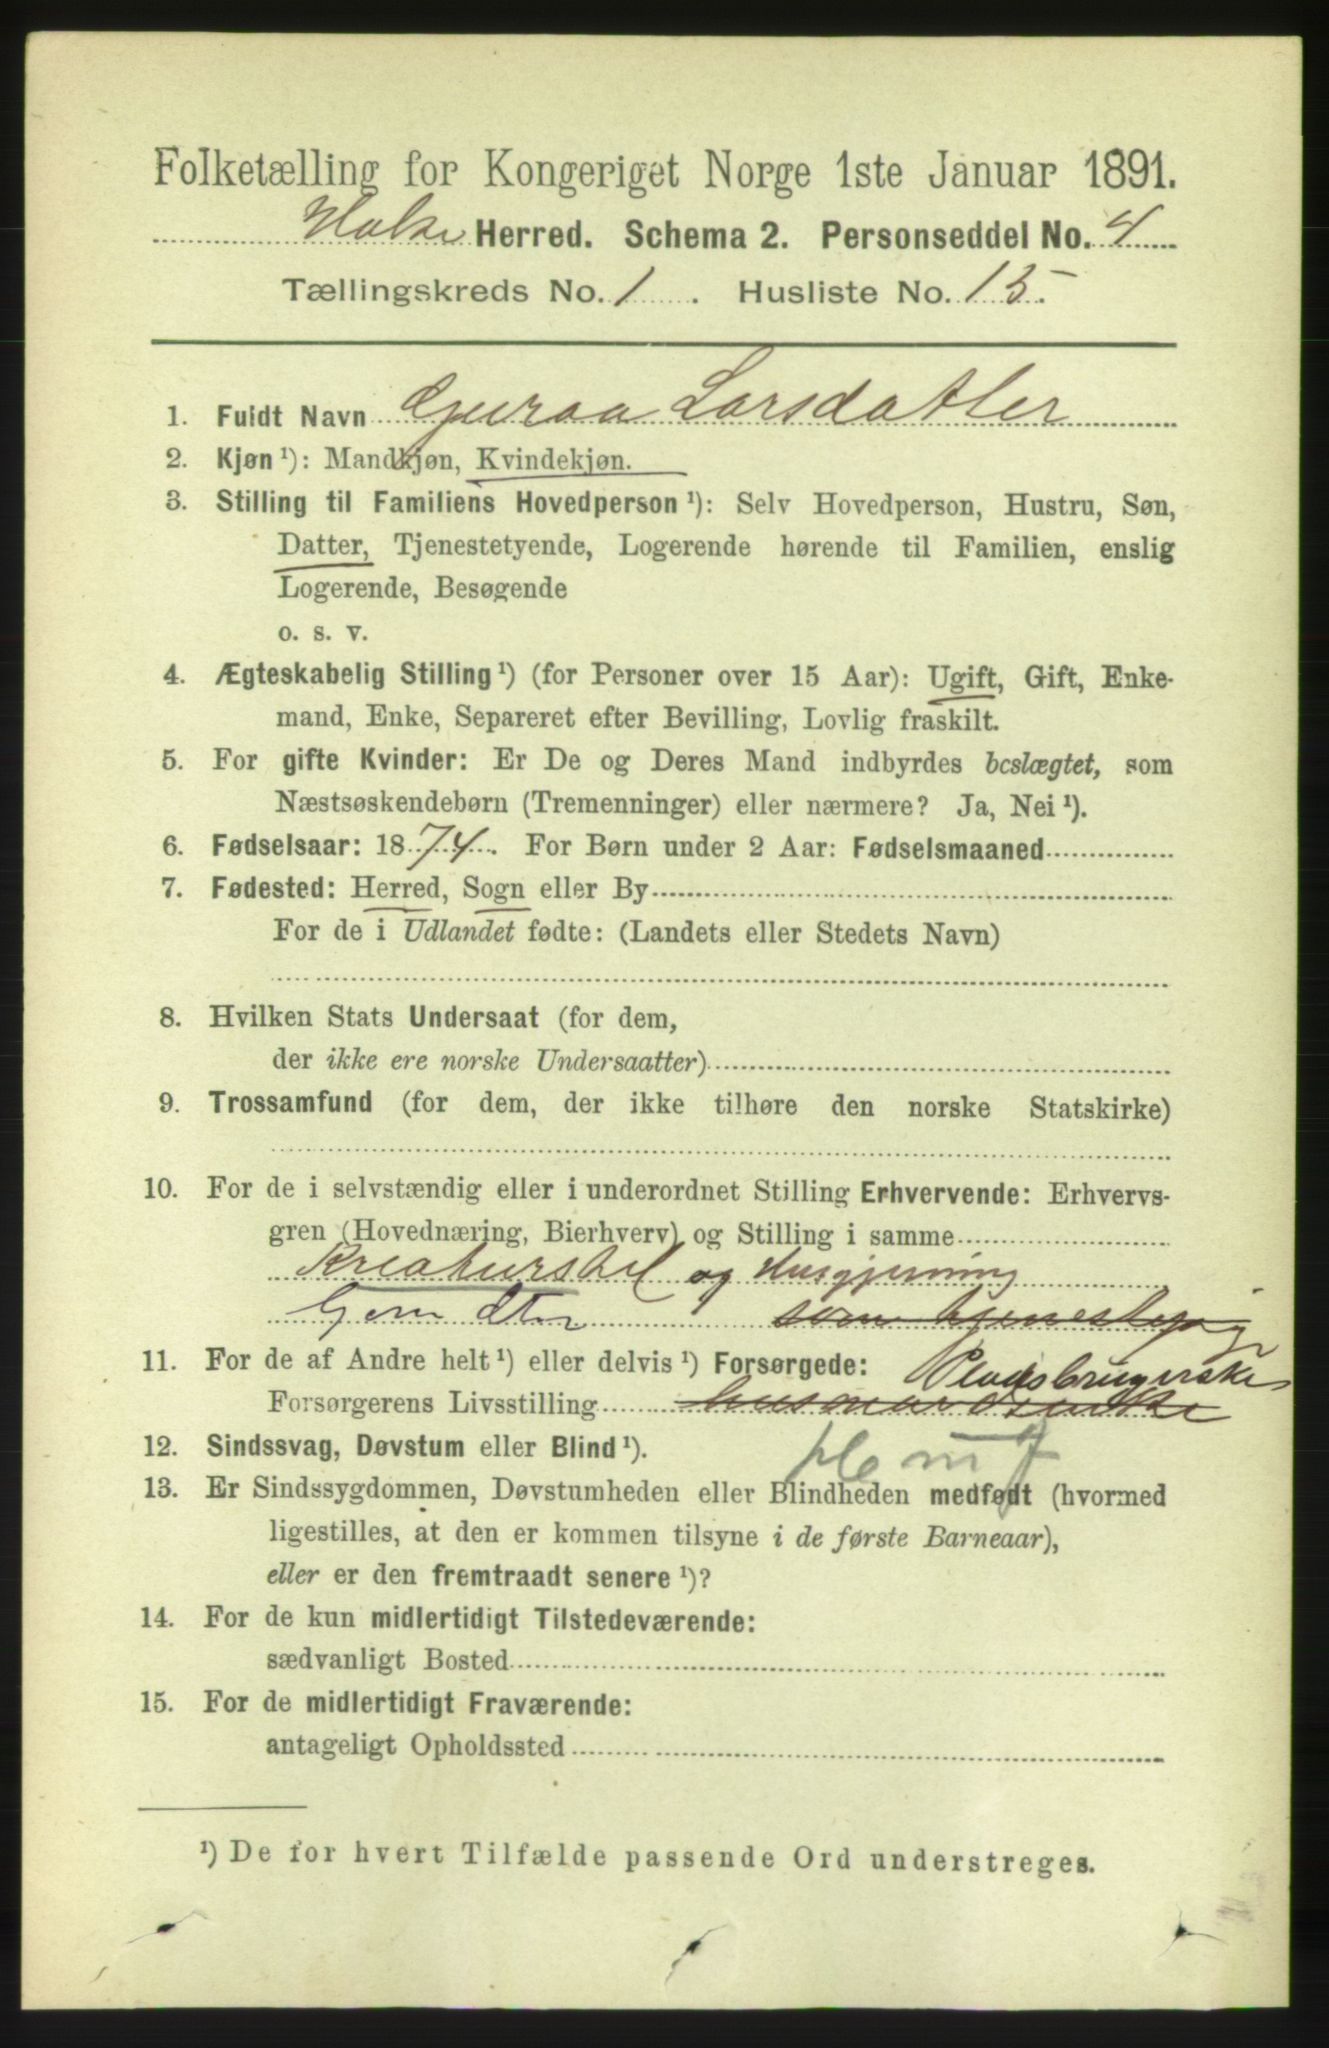 Folketælling for Kongeriget Norge 1ste Januar 1891.
Herred. Schema 2. Personseddel No. 4
Tællingskreds No. 1. Husliste No. 15.
1. Fuldt Navn Guroa Larsdatter
2. Kjøn ¹): Mandkjøn, Kvindekjøn.
3. Stilling til Familiens Hovedperson ¹): Selv Hovedperson, Hustru, Søn,
Datter, Tjenestetyende, Logerende hørende til Familien, enslig
Logerende, Besøgende
o. s. v.
4. Ægteskabelig Stilling ¹) (for Personer over 15 Aar): Ugift, Gift, Enke-
mand, Enke, Separeret efter Bevilling, Lovlig fraskilt.
5. For gifte Kvinder: Er De og Deres Mand indbyrdes beslægtet, som
Næstsøskendebørn (Tremenninger) eller nærmere? Ja, Nei ¹).
6. Fødselsaar: 1874. For Børn under 2 Aar: Fødselsmaaned
7. Fødested: Herred, Sogn eller By
For de i Udlandet fødte: (Landets eller Stedets Navn)
8. Hvilken Stats Undersaat (for dem,
der ikke ere norske Undersaatter)
9. Trossamfund (for dem, der ikke tilhøre den norske Statskirke)
10. For de i selvstændig eller i underordnet Stilling Erhvervende: Erhvervs-
gren (Hovednæring, Bierhverv) og Stilling i samme
Kreaturstel og Husgjerning
som
11. For de af Andre helt ¹) eller delvis ¹) Forsørgede: Pladsbrugerske
Forsørgerens Livsstilling husmandsenke
12. Sindssvag, Døvstum eller Blind ¹).
13. Er Sindssygdommen, Døvstumheden eller Blindheden medfødt (hvormed
ligestilles, at den er kommen tilsyne i de første Barneaar),
eller er den fremtraadt senere ¹)?
14. For de kun midlertidigt Tilstedeværende:
sædvanligt Bosted
15. For de midlertidigt Fraværende:
antageligt Opholdssted
¹) De for hvert Tilfælde passende Ord understreges.